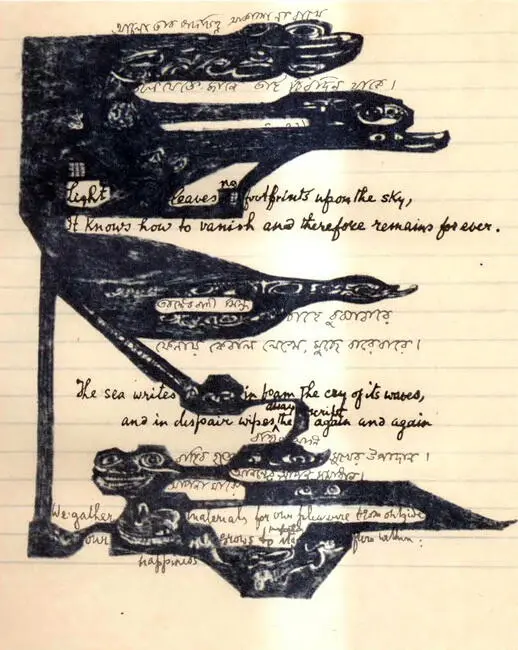 আলো তার পদচিহ্ন আকাশে না রাখে
যেতে জানে তাই চিরদিন থাকে ।
Light leaves no footprints upon the sky,
It knows how to vanish and therefore remains for ever.
তরঙ্গের বাণী সিন্ধু চাহে বুঝাবারে
ফেনায় কেবলি লেখে, মুছে বারেবারে ।
The sea writes in foam the cry of its waves,
and in despair wipes away the script again and again
সুখের উপাদান ।
We gather materials for our pleasure from outside
our happiness grows to its from within: